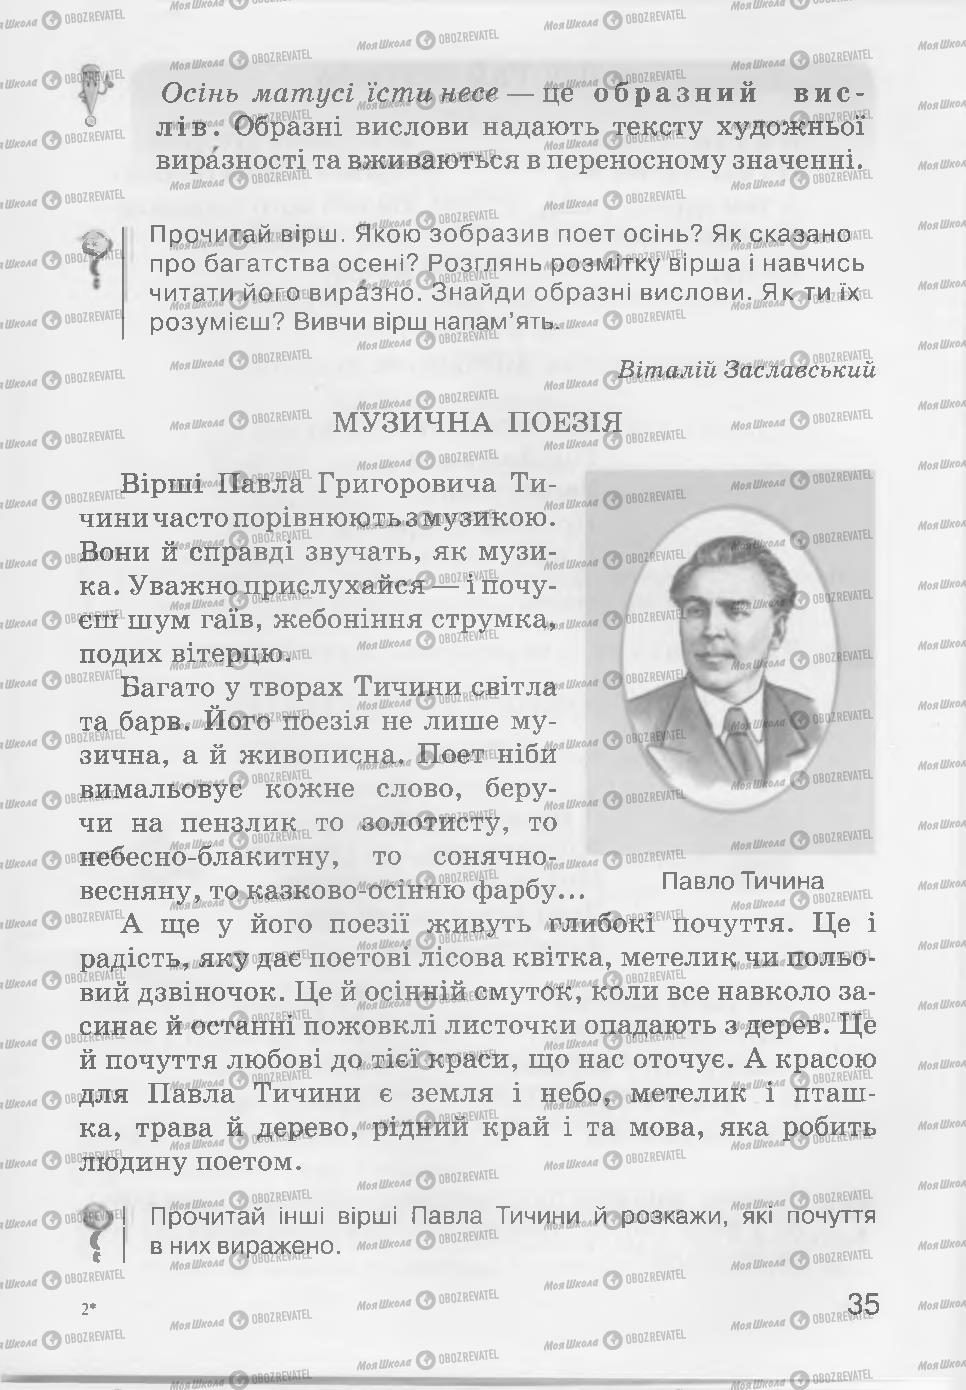 Осінь матусі їсти несе — це образний вис-
лів. Образні вислови надають тексту художньої
вира́зності та вживаються в переносному значенні.
Прочитай вірш. Якою зобразив поет осінь? Як сказано
про багатства осені? Розглянь розмітку вірша і навчись
читати його вира́зно. Знайди образні вислови. Як ти їх
розумієш? Вивчи вірш напам’ять.
Віталій Заславський
МУЗИЧНА ПОЕЗІЯ
Вірші Павла Григоровича Ти-
чини часто порівнюють з музикою.
Вони й справді звучать, як музи-
ка. Уважно прислухайся — і почу-
єш шум гаїв, жебоніння струмка,
подих вітерцю.
Багато у творах Тичини світла
та барв. Його поезія не лише му-
зична, а й живописна. Поет ніби
вимальовує кожне слово, беру-
чи на пензлик то золотисту, то
небесно-блакитну, то сонячно-
весняну, то казково-осінню фарбу...
Павло Тичина
А ще у його поезії живуть глибокі почуття. Це і
радість, яку дає поетові лісова квітка, метелик чи польо-
вий дзвіночок. Це й осінній смуток, коли все навколо за-
синає й останні пожовклі листочки опадають з дерев. Це
й почуття любові до тієї краси, що нас оточує. А красою
для Павла Тичини є земля і небо, метелик і пташ-
ка, трава й дерево, рідний край і та мова, яка робить
людину поетом.
Прочитай інші вірші Павла Тичини й розкажи, які почуття
в них виражено.
2*
35